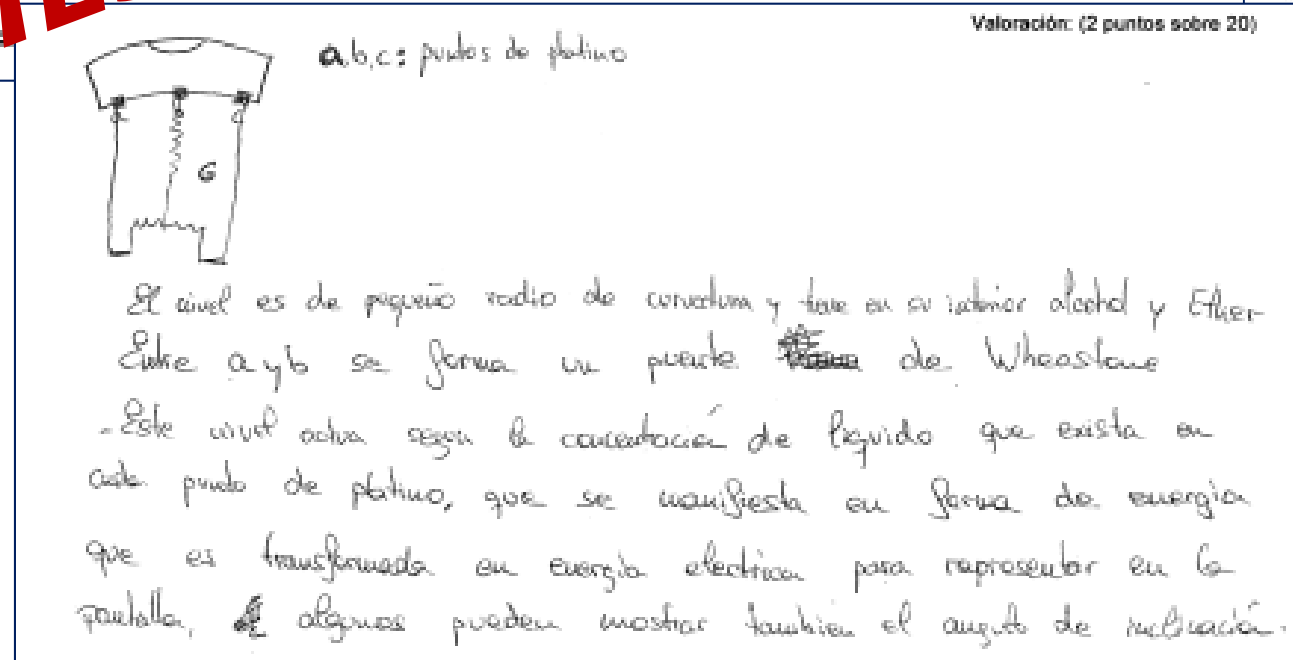 Valoración: (2 puntos sobre 20)
a,b,c: puntos de platino
G
El nivel es de pequeño radio de curvatura y tiene en su interior alcohol y Ether
Entre a y b se forma un puente de Wheastone
- Este nivel actua segun la concentración de liquido que exista en
cada punto de platino, que se manifiesta en forma de energia
que es transformada en energia electrica para representar en la
pantalla, algunos pueden mostrar tambien el angulo de inclinación.